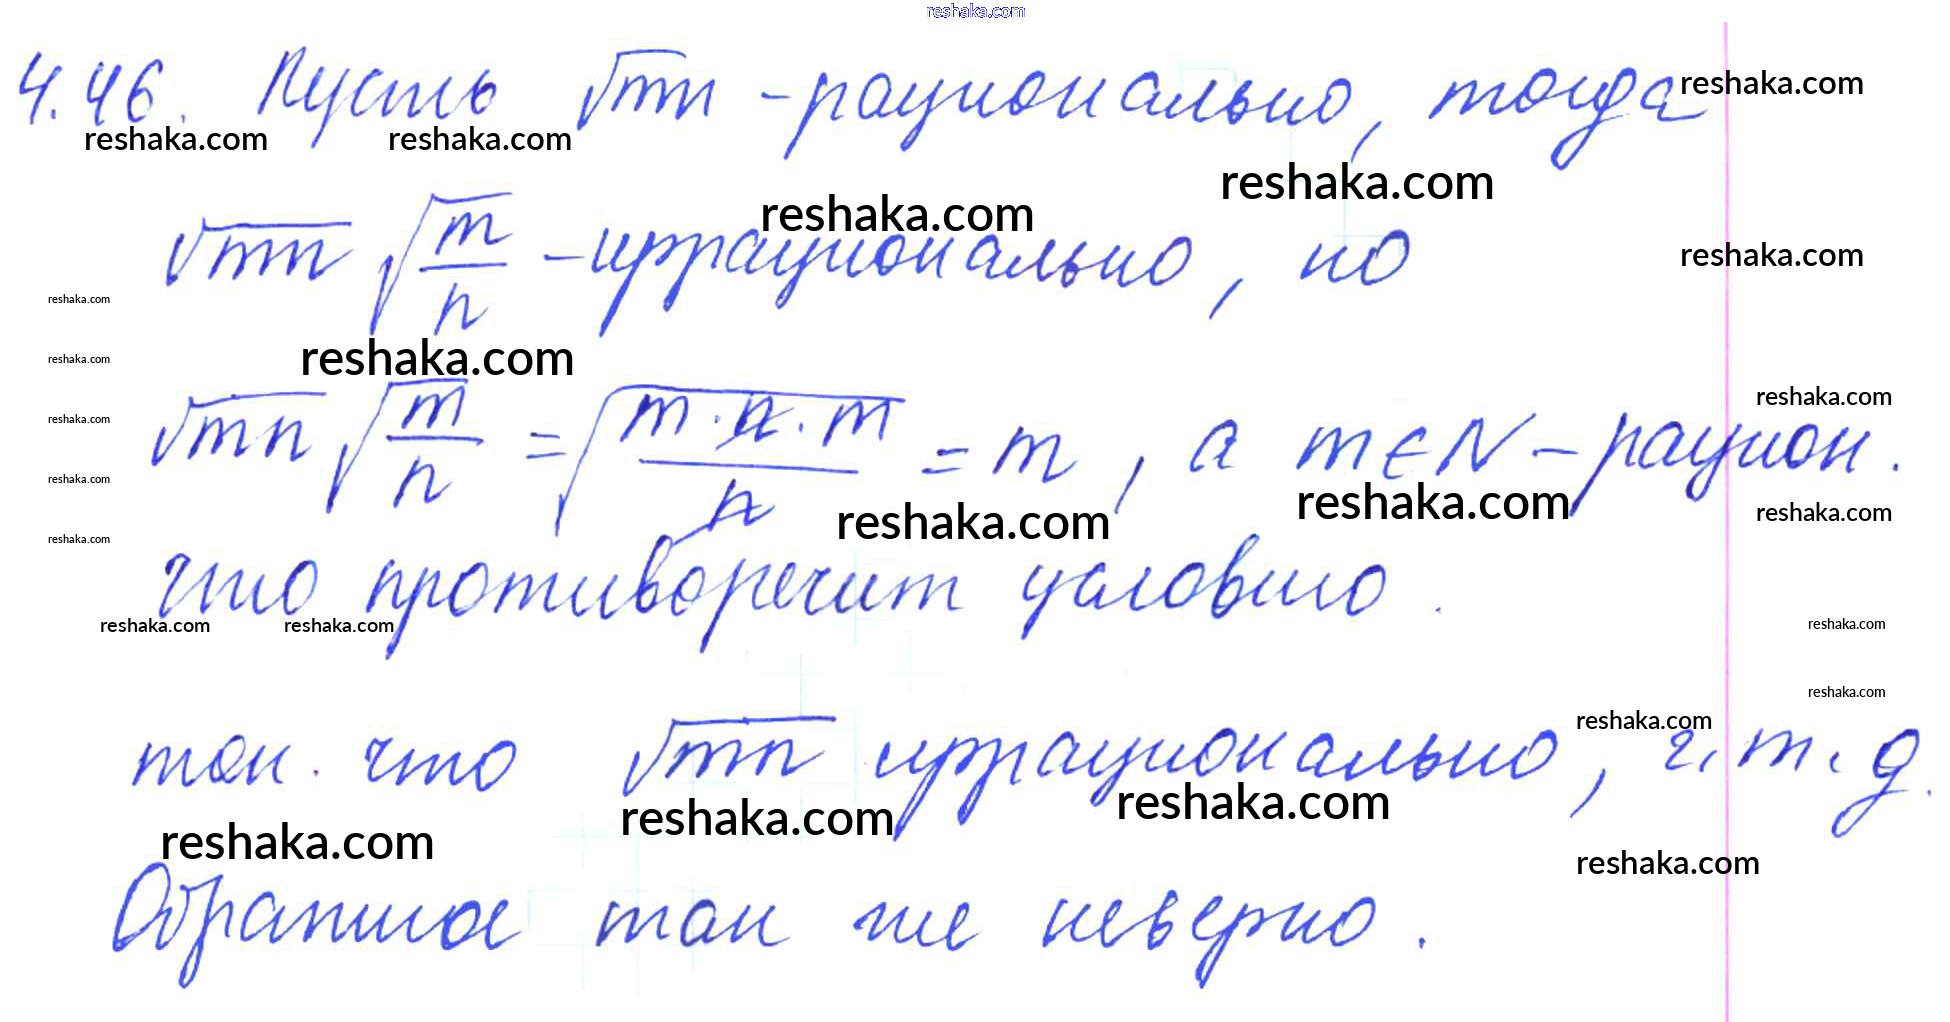 reshaka.com
4.46. Пусть √mn - рационально, тогда reshaka.com
reshaka.com reshaka.com
reshaka.com reshaka.com
√mn √m/n - иррационально, но reshaka.com
reshaka.com
reshaka.com reshaka.com
√mn √m/n = √m·n·m/n = m, а m∈N - рацион.
reshaka.com
reshaka.com
reshaka.com
reshaka.com reshaka.com reshaka.com
reshaka.com
что противоречит условию.
reshaka.com reshaka.com reshaka.com
reshaka.com
reshaka.com
так что √mn иррационально, ч.т.д.
reshaka.com reshaka.com reshaka.com
reshaka.com
Обратное так же неверно.